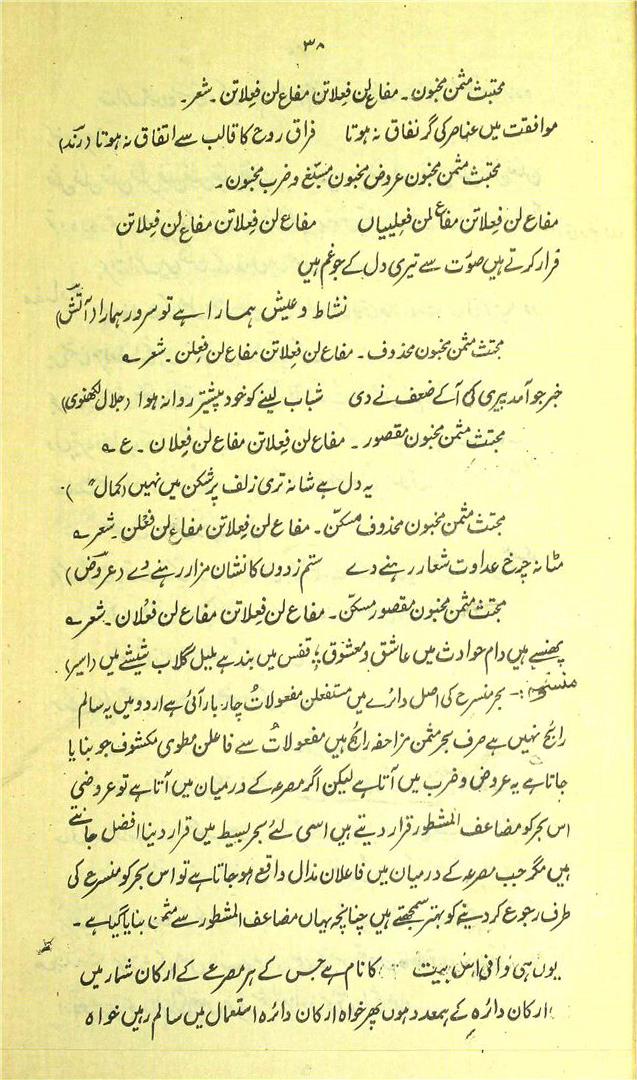 ۳۸
مجتث مثمن مخبون ۔ مفاع لن فعلاتن مفاع لن فعلاتن ۔ شعر۔
موافقت میں عناصر کی گر نفاق نہ ہوتا فراق روح کا قالب سے اتفاق نہ ہوتا (رند)
مجتث مثمن مخبون عروض مخبون مسبّغ و ضرب مخبون ۔
مفاع لن فعلاتن مفاع لن فعلییاں مفاع لن فعلاتن مفاع لن فعلاتن
قرار کرتے ہیں صوت سے تیری دل کے جو غم ہیں
نشاط و عیش ہمارا ہے تو سرور ہمارا (آتش)
مجتث مثمن مخبون محذوف ۔ مفاع لن فعلاتن مفاع لن فعلن ۔ شعر ے
خبر جو آمد پیری کی آ کے ضعف نے دی شباب لینے کو خود پیشتر روانہ ہوا (جلال لکھنوی)
مجتث مثمن مخبون مقصور ۔ مفاع لن فعلاتن مفاع لن فعلان ۔ ع ے
یہ دل ہے شانہ تری زلف پر شکن میں نہیں (کمال)
مجتث مثمن مخبون محذوف مسکّن ۔ مفاع لن فعلاتن مفاع لن فعْلن ۔ شعر ے
مٹا نہ چرخ عداوت شعار رہنے دے ستم زدوں کا نشان مزار رہنے دے (عروض)
مجتث مثمن مخبون مقصور مسکّن ۔ مفاع لن فعلاتن مفاع لن فعْلان ۔ شعر ے
پھنسے ہیں دام حوادث میں عاشق و معشوق ؛ قفس میں بند ہے بلبل گلاب شیشے میں (اسیر)
منسرح :۔ بحر منسرح کی اصل دائرے میں مستفعلن مفعولاتُ چار بار آئی ہے اردو میں یہ سالم
رائج نہیں ہے صرف بحر مثمن مزاحفہ رائج ہیں مفعولاتُ سے فاعلن مطوی مکشوف جو بنایا
جاتا ہے یہ عروض و ضرب میں آتا ہے لیکن اگر مصرعہ کے درمیان میں آتا ہے تو عروضی
اس بحر کو مضاعف المشطور قرار دیتے ہیں اسی لئے بحر بسیط میں قرار دینا افضل جانتے
ہیں مگر جب مصرعہ کے درمیان میں فاعلان مذال واقع ہو جاتا ہے تو اس بحر کو منسرح کی
طرف رجوع کر دینے کو بہتر سمجھتے ہیں چنانچہ یہاں مضاعف المشطور سے مثمن بنایا گیا ہے ۔
یوں ہی وافی اس بیت کا نام ہے جس کے ہر مصرعے کے ارکان شمار میں
ارکان دائرہ کے ہمعدد ہوں پھر خواہ ارکان دائرہ استعمال میں سالم رہیں خواہ